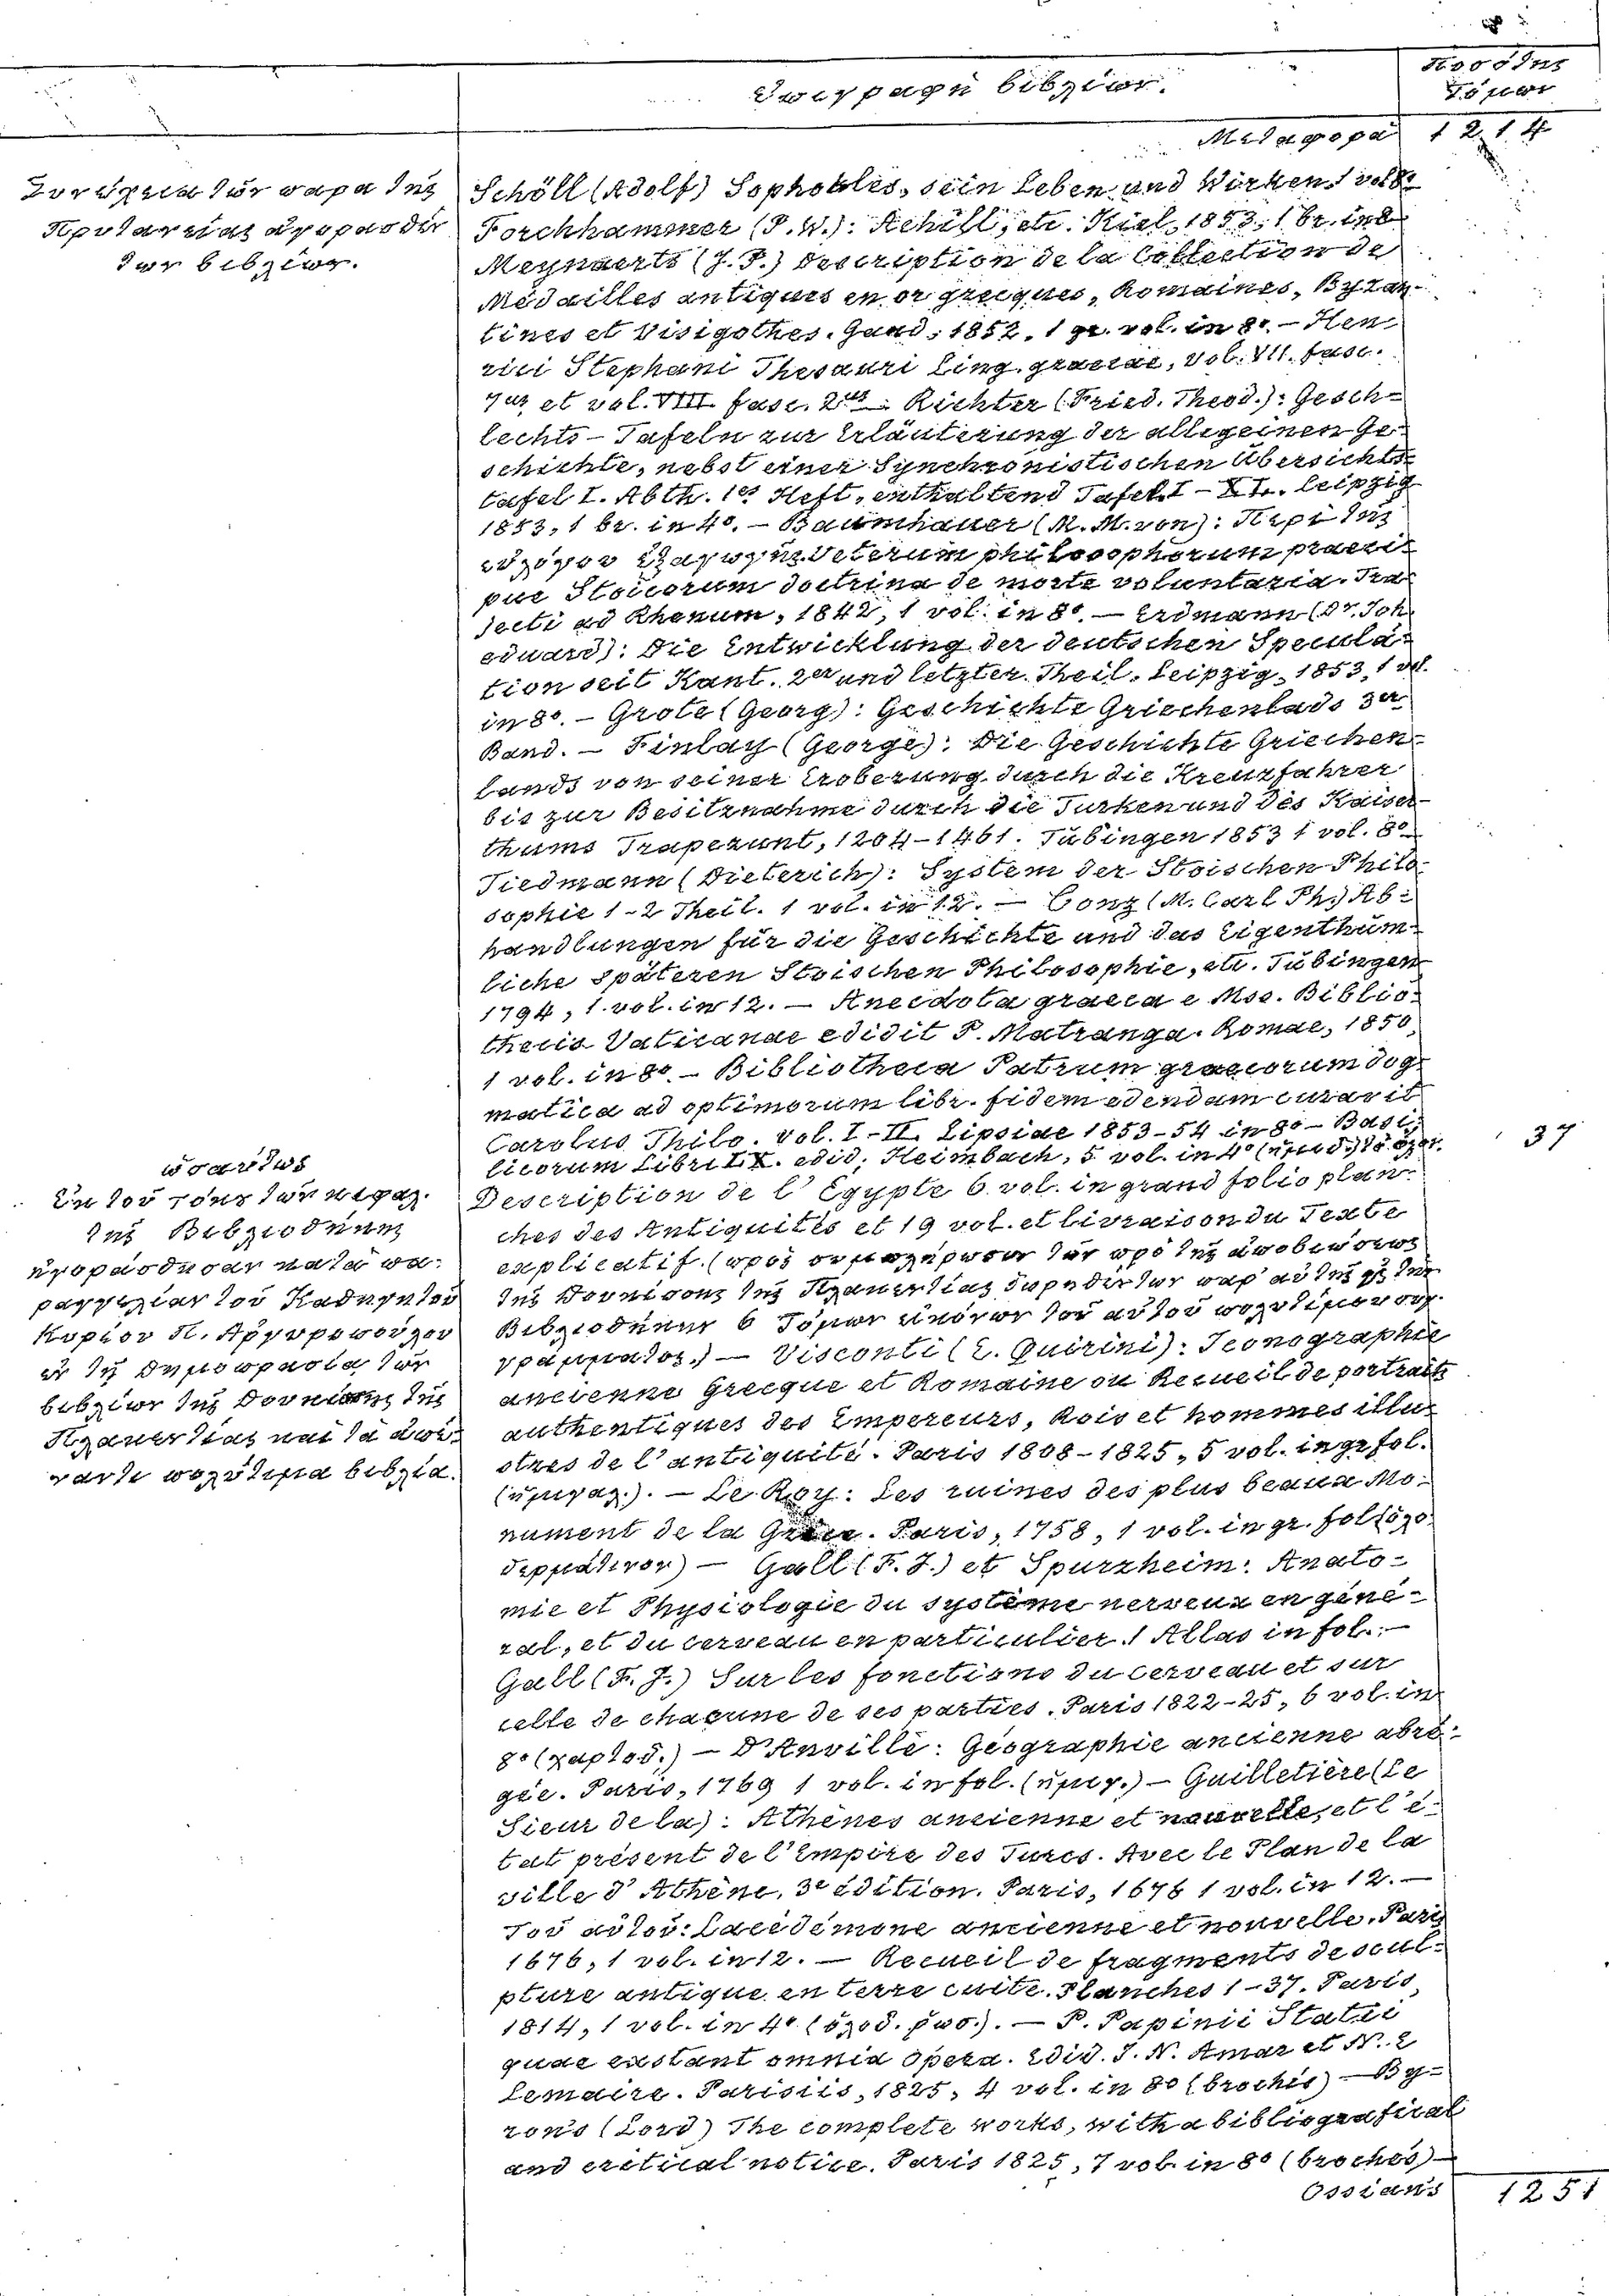 Ποσότης
Συγγραφὴ βιβλίων.
Τόμων
Μεταφορὰ 1214
Συνέχεια τῶν παρὰ τῆς
Πρυτανείας ἀγορασθέν
των βιβλίων.
Schöll (Adolf) Sophokles, sein Leben und Wirken 1 vol 8o
Forchhammer (P. W.): Achill, etc. Kiel, 1853, 1 br. in 8o
Meynaerts (J. P.) Description de la Collection de
Médailles antiques en or grecques, Romaines, Byzan-
tines et Visigothes. Gand, 1852. 1 gr. vol. in 8o. – Hen
rici Stephani Thesauri ling. graecae, Vol. VII. fasc.
7us et vol. VIII fasc. 2us – Richter (Fried. Theod.): Gesch=
lechts – Tafeln zur Erläuterung der allgeinen Ge-
schichte, nebst einer Synchronistischen Übersichts=
tafel I. Abth. 1es Heft, enthaltend Tafel I – XI. Leipzig
1853, 1 br. in 4o. – Baumhauer (M. M. von): Περὶ τῆς
εὐλόγου ἐξαγωγῆς Veterum philosophorum praeci=
pue Stoicorum doctrina de morte voluntaria. Tra=
jecti ad Rhenum, 1842, 1 vol. in 8o. — Erdmann (Dr. Joh.
eduard): Die Entwicklung der deutschen Specula=
tion seit Kant. 2er und letzter Theil. Leipzig, 1853, 1 vol.
in 8o. – Grote (Georg): Geschichte Griechenlads 3er
Band. – Finlay (George): Die Geschichte Griechen=
lands von seiner Eroberung durch die Kreuzfahrer
bis zur Besitznahme durch die Turken und des Kaiser-
thums Trapezunt, 1204–1461. Tübingen 1853 1 vol. 8o
Tiedmann (Dieterich): System der Stoischen Philo-
sophie 1–2 Theil. 1 vol. in 12. — Conz (M. Carl Ph.) Ab=
handlungen für die Geschichte und das Eigenthüm-
liche späteren Stoischen Philosophie, etc. Tübingen
1794, 1. vol. in 12. — Anecdota graeca e Mss. Biblio=
thecis Vaticanae edidit P. Matranga. Romae, 1850,
1 vol. in 8o. – Bibliotheca Patrum graecorum dog=
matica ad optimorum libr. fidem edendam curavit
Carolus Thilo. Vol. I–II. Lipsiae 1853–54 in 8o – Basi=
licorum Libri LX. edid. Heimbach, 5 vol. in 4o 37
ὡσαύτως
Ἐκ τοῦ τόκου τῶν κεφαλ.
τῆς Βιβλιοθήκης
ἠγοράσθησαν κατὰ πα-
ραγγελίαν τοῦ Καθηγητοῦ
Κυρίου Π. Ἀργυροπούλου
ἐν τῇ δημοπρασίᾳ τῶν
βιβλίων τῆς Δουκίσσης τῆς
Πλακεντίας καὶ τὰ ἀπέ-
ναντι πολύτιμα βιβλία.
Description de l'Egypte 6 vol. in grand folio plan-
ches des Antiquités et 19 vol. et livraison du Texte
explicatif. (πρὸς συμπλήρωσιν τῶν πρὸ τῆς ἀποβιώσεως
τῆς Δουκίσσης τῆς Πλακεντίας δωρηθέντων παρ' αὐτῆς εἰς τὴν
Βιβλιοθήκην 6 τόμων εἰκόνων τοῦ αὐτοῦ πολυτίμου συγ-
γράμματος.) — Visconti (E. Quirini): Iconographie
ancienne Grecque et Romaine ou Recueil de portraits
authentiques des Empereurs, Rois et hommes illu=
stres de l'antiquité. Paris 1808–1825, 5 vol. in gr fol.
— Le Roy: Les ruines des plus beaux Mo-
nument de la Grèce. Paris, 1758, 1 vol. in gr. fol (ὁλο-
δερμάτινον) — Gall (F. J.) et Spurzheim: Anato=
mie et Physiologie du système nerveux en géné-
ral, et du cerveau en particulier. 1 Atlas in fol. –
Gall (F. J.) Sur les fonctions du cerveau et sur
celle de chacune de ses parties. Paris 1822–25, 6 vol. in
8o (χαρτοδ.) — D'Anville: Géographie ancienne abré-
gée. Paris, 1769 1 vol. in fol. — Guilletière (Le
Sieur de la): Athènes ancienne et nouvelle, et l'é-
tat présent de l'Empire des Turcs. Avec le Plan de la
ville d'Athène. 3e édition. Paris, 1676 1 vol. in 12. —
Τοῦ αὐτοῦ: Lacédémone ancienne et nouvelle. Paris
1676, 1 vol. in 12. — Recueil de fragments de scul-
pture antique en terre cuite. Planches 1–37. Paris,
1814, 1 vol. in 4o (ὁλοδ. ῥωσ.). — P. Papinii Statii
quae exstant omnia opera. Edid. J. N. Amar et N. E
Lemaire. Parisiis, 1825, 4 vol. in 8o (brochés) — By=
rons (Lord) The complete works, with a bibliografical
and critical notice. Paris 1825, 7 vol. in 8o (brochés) —
Ossian's 1251